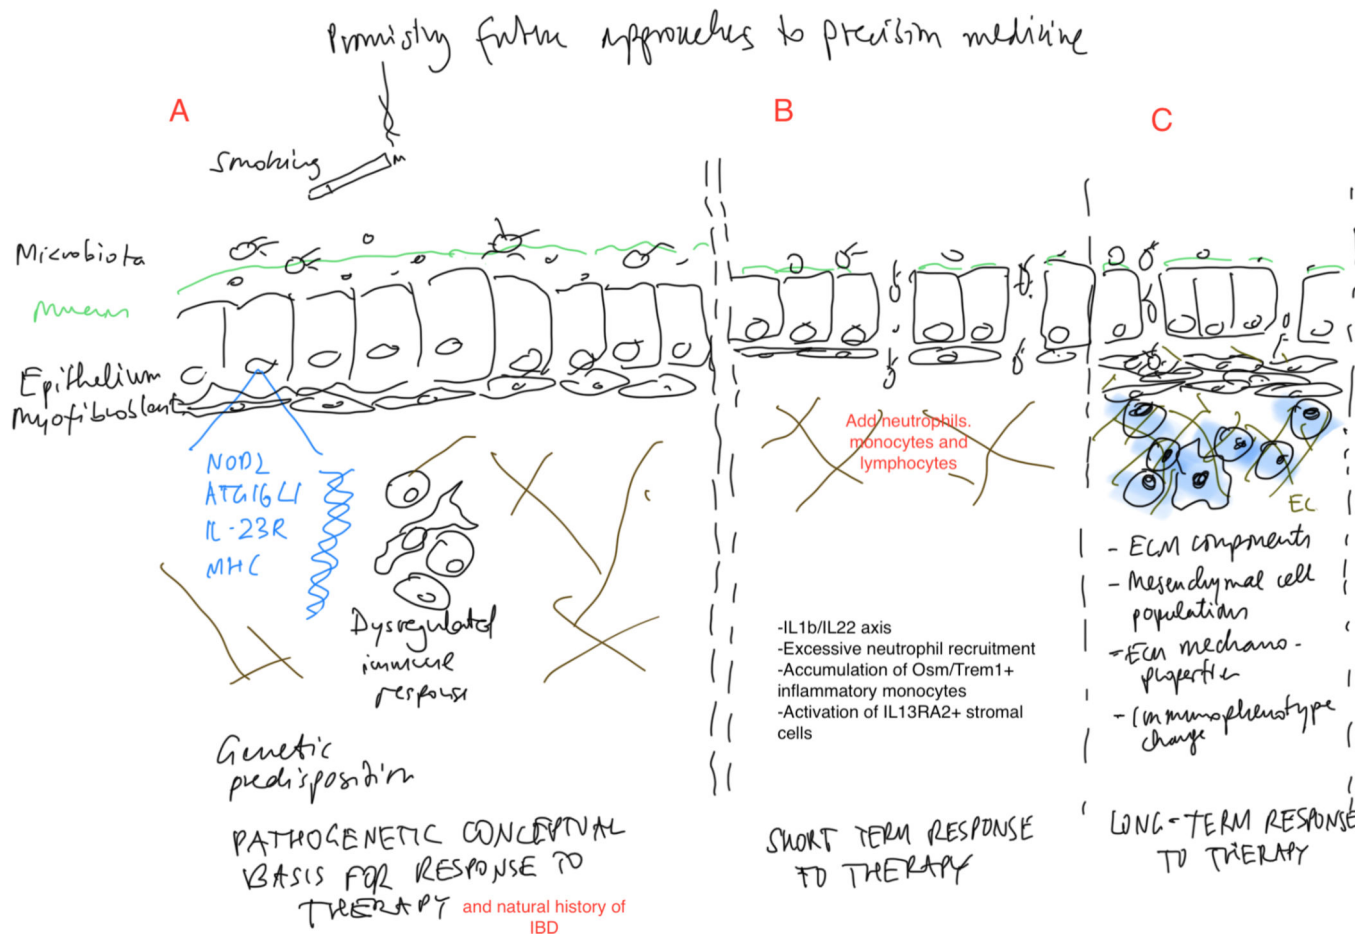 Promistry future approaches to precision medicine
A
B
C
Smoking
Microbiota
Mucus
Epithelium
Myofibroblasts
NOD2
ATG16L1
IL-23R
MHC
Dysregulated
immune
response
Genetic
predisposition
PATHOGENETIC CONCEPTUAL
BASIS FOR RESPONSE TO
THERAPY and natural history of
IBD
Add neutrophils.
monocytes and
lymphocytes
-IL1b/IL22 axis
-Excessive neutrophil recruitment
-Accumulation of Osm/Trem1+
inflammatory monocytes
-Activation of IL13RA2+ stromal
cells
SHORT TERM RESPONSE
TO THERAPY
EC
- ECM components
- Mesenchymal cell
populations
- ECM mechano-
properties
- Immunophenotype
change
LONG-TERM RESPONSE
TO THERAPY